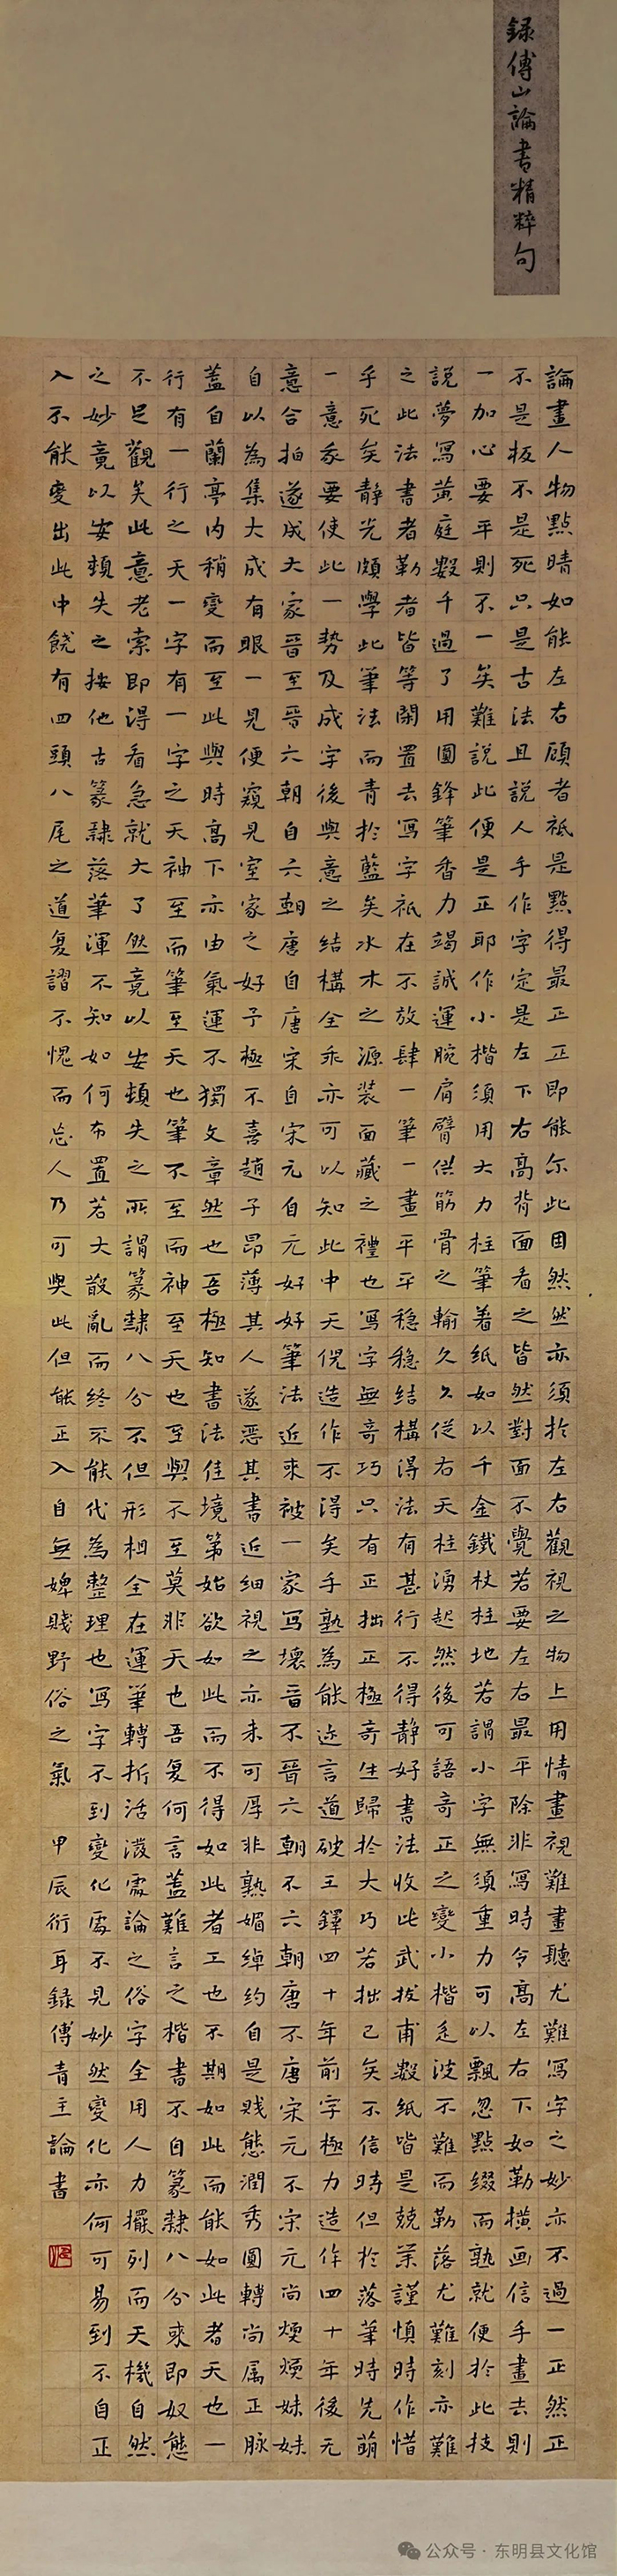 録傅山論書精粹句
論畫人物點睛如能左右顧者祇是點得最正正即能尔此固然然亦須於左右觀視之物上用情畫視難畫聽尤難寫字之妙亦不過一正然正
不是板不是死只是古法且說人手作字定是左下右高背面看之皆然對面不覺若要左右最平除非寫時令高左右下如勒橫画信手畫去則
一加心要平則不一矣難說此便是正耶作小楷須用大力柱筆着紙如以千金鐵杖柱地若謂小字無須重力可以飄忽點綴而熟就便於此技
說夢寫黃庭數千過了用圓鋒筆香力竭誠運腕肩臂供筋骨之輸久久從右天柱湧起然後可語奇正之變小楷迟波不難而勒落尤難刻亦難
之此法書者勒者皆等閑置去寫字祇在不放肆一筆一畫平平穩穩結構得法有甚行不得靜好書法收此武拔甫數紙皆是兢業謹慎時作惜
乎死矣靜光頗學此筆法而青於藍矣水木之源裝面藏之禮也寫字無奇巧只有正拙正極奇生歸於大巧若拙已矣不信時但於落筆時先萌
一意我要使此一勢及成字後與意之結構全乖亦可以知此中天倪造作不得矣手熟為能迩言道破王鐸四十年前字極力造作四十年後无
意合拍遂成大家晉至晉六朝自六朝唐自唐宋自宋元自元好好筆法近來被一家写壞晉不晉六朝不六朝唐不唐宋元不宋元尚煗煗妹妹
自以為集大成有眼一見便窺見室家之好予極不喜趙子昂薄其人遂惡其書近細視之亦未可厚非熟媚綽約自是賤態潤秀圓轉尚属正脉
蓋自蘭亭內稍變而至此與時高下亦由氣運不獨文章然也吾極知書法佳境第始欲如此而不得如此者工也不期如此而能如此者天也一
行有一行之天一字有一字之天神至而筆至天也筆不至而神至天也至與不至莫非天也吾复何言蓋難言之楷書不自篆隸八分來即奴態
不足觀矣此意老索即得看急就大了然竟以安頓失之所謂篆隸八分不但形相全在運筆轉折活潑處論之俗字全用人力擺列而天機自然
之妙竟以安頓失之按他古篆隸落筆渾不知如何布置若大散亂而終不能代為整理也寫字不到變化處不見妙然變化亦何可易到不自正
入不能變出此中饒有四頭八尾之道复謟不愧而忘人乃可與此但能正入自無婢賤野俗之氣 甲辰衍耳録傅青主論書
公众号·东明县文化馆